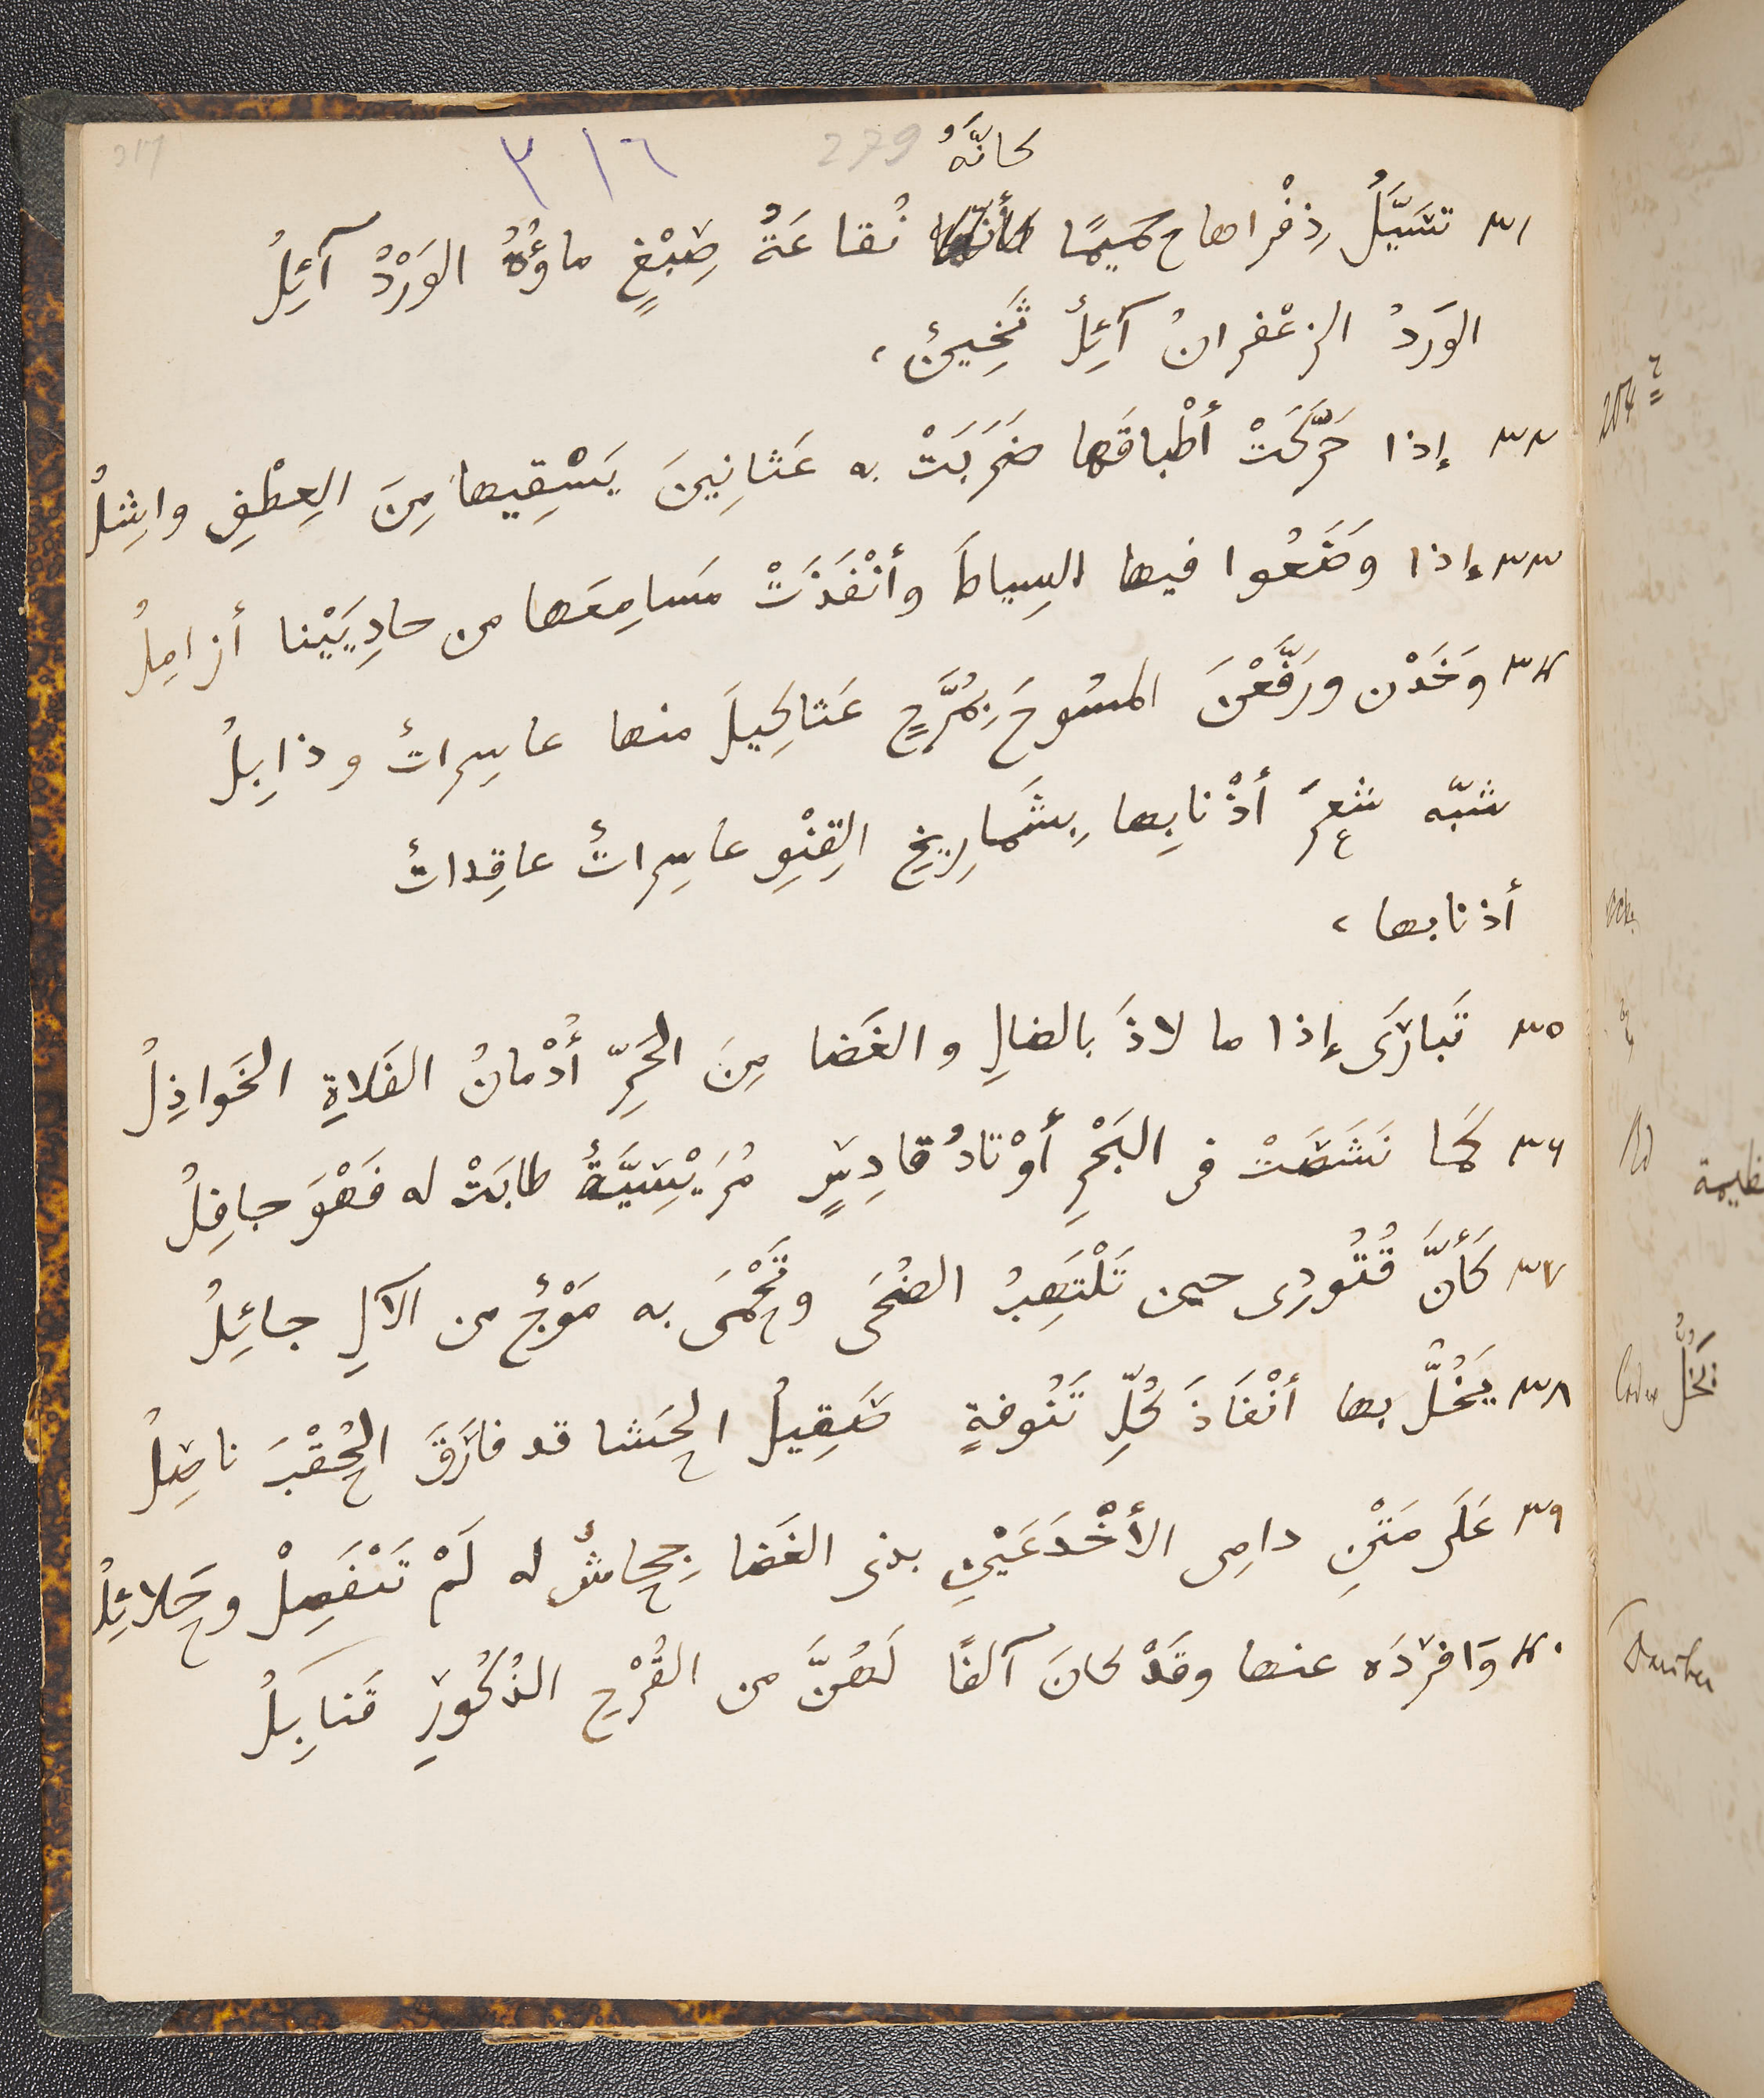 ٣١٦
279
كانّهُ
٣١ تسَيَّلُ ذِفْراها حَمِيمًا نُقاعَةُ صِبْغٍ ماؤُهُ الوَرْدُ آئِلُ
الوَردُ الزعْفرانُ آئِلٌ ثَخِينٌ،
٣٢ إذا حَرَّكَتْ أطْباقَها ضَرَبَتْ به عَثانِينَ يَسْقِيها مِنَ العِطْفِ واشِلُ
٣٣ إذا وَضَعُوا فيها السِياطَ وأنْفَذَتْ مَسامِعَها من حادِيَيْنا أزامِلُ
٣٤ وَخَدْن ورَفَّعْنَ المسُوحَ عَثاكِيلَ منها عاسِراتٌ وذابِلُ
شبّه شعرَ أذْنابِها بِشَمارِيخِ القِنْوِ عاسِراتٌ عاقِداتٌ
أذنابها،
٣٥ تَبارَى إذا ما لاذَ بالضالِ والغَضا مِنَ الحَرِّ أُدْمانُ الفَلاةِ الخَواذِلُ
٣٦ كَما نَشَصَتْ فى البَحْرِ أوْتادُ قادِسٍ مُرَيْسِيَّةٌ طابَتْ له فَهْوَ جافِلُ
٣٧ كَأنَّ قُتُودِى حين تَلْتَهِبُ الضُحَى وتَحْمَى به مَوْجٌ من الآلِ جائِلُ
٣٨ يَخُلُّ بها أنْفَاذَ كُلِّ تَنُوفةٍ صَقِيلُ الحَشا قد فارَقَ الحُقْبَ ناصِلُ
٣٩ عَلَى مَتْنِ دامِى الأخْدَعَيْنِ بذى الغَضا جِحاشٌ له لَمْ تَنْفَصِلْ وحَلائِلُ
٤٠ وَافرَدَه عنها وقَدْ كانَ آلفًا لَهُنَّ من القُرْحِ الذُكُورِ قَنابِلُ